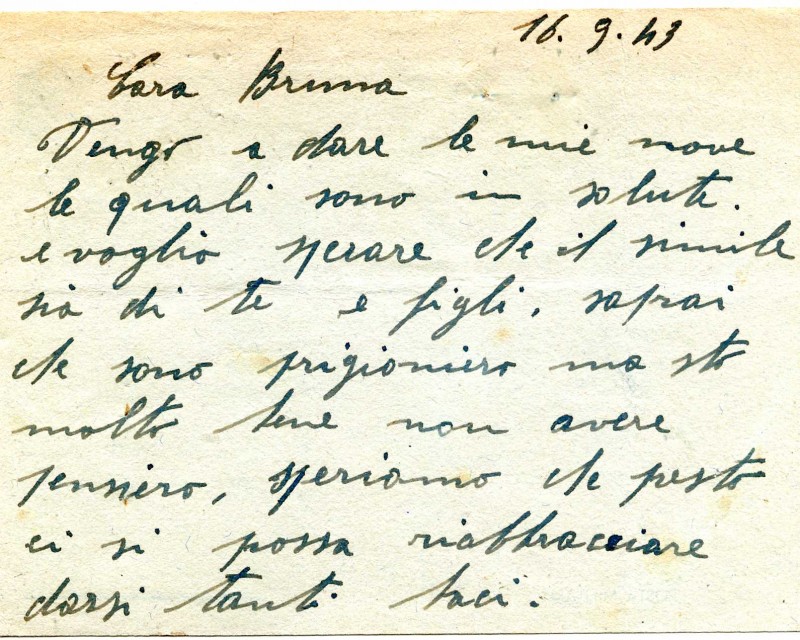 16.9.43
Cara Bruna
Vengo a dare le mie nove
le quali sono in salute.
e voglio sperare che il simile
sia di te e figli, saprai
che sono prigioniero ma sto
molto bene non avere
pensiero, speriamo che presto
ci si possa riabbracciare
darsi tanti baci.